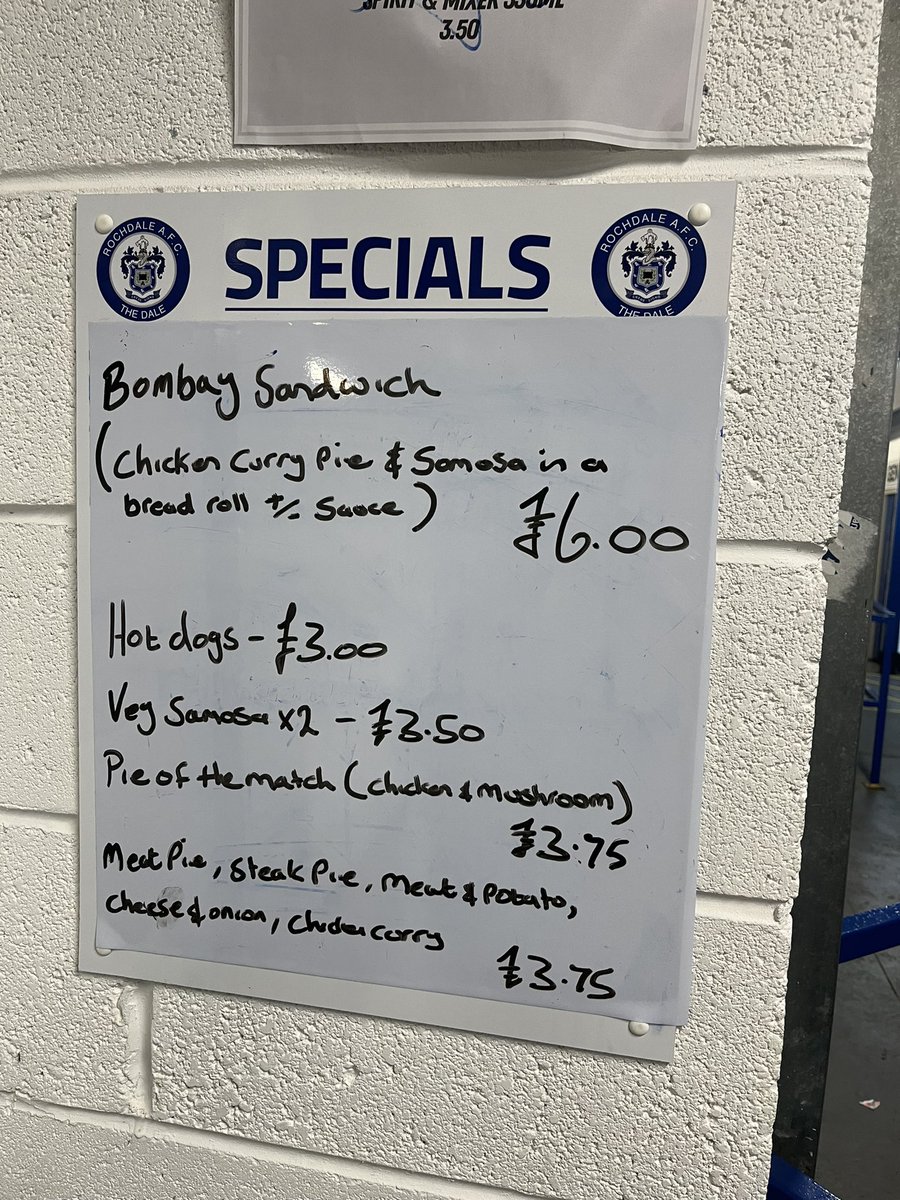 SPIRIT & MIXER 330ML
3.50
ROCHDALE A.F.C.
THE DALE
SPECIALS
ROCHDALE A.F.C.
THE DALE
Bombay Sandwich
(Chicken Curry Pie & Samosa in a
bread roll +/- Sauce)
£6.00
Hot dogs - £3.00
Veg Samosa x2 - £3.50
Pie of the match (chicken & Mushroom)
£3.75
Meat Pie, Steak Pie, Meat & Potato,
cheese & onion, Chicken curry
£3.75